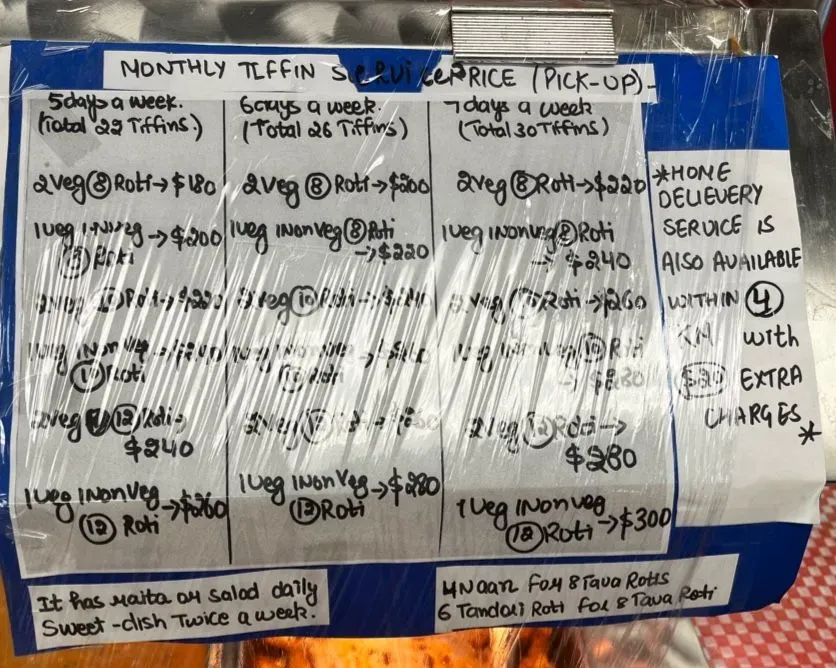 MONTHLY TIFFIN SERVICE PRICE (PICK-UP)-
5days a week.
(Total 22 Tiffins.)
2Veg 8 Roti → $180
1veg 1Nonveg → $200
8 Roti
2veg 10 Roti → $220
1veg 1Nonveg → $240
10 Roti
2veg 12 Roti →
$240
1veg 1NonVeg → $260
12 Roti
6days a week.
(Total 26 Tiffins)
2Veg 8 Roti → $200
1veg 1NonVeg 8 Roti
→ $220
2veg 10 Roti → $240
1veg 1NonVeg → $260
10 Roti
2veg 12 Roti → $260
1veg 1NonVeg → $280
12 Roti
7days a week
(Total 30 Tiffins)
2veg 8 Roti → $220
1veg 1Nonveg 8 Roti
→ $240
2veg 10 Roti → $260
1veg 1Nonveg 10 Roti
→ $280
2veg 12 Roti →
$280
1veg 1Nonveg
12 Roti → $300
*HOME
DELIEVERY
SERVICE IS
AlSO AVAILABLE
WITHIN 4
KM with
$20 EXTRA
CHARGES*
It has raita or salad daily
Sweet-dish Twice a week.
4Naan for 8 Tava Rotis
6 Tandori Roti for 8 Tava Roti